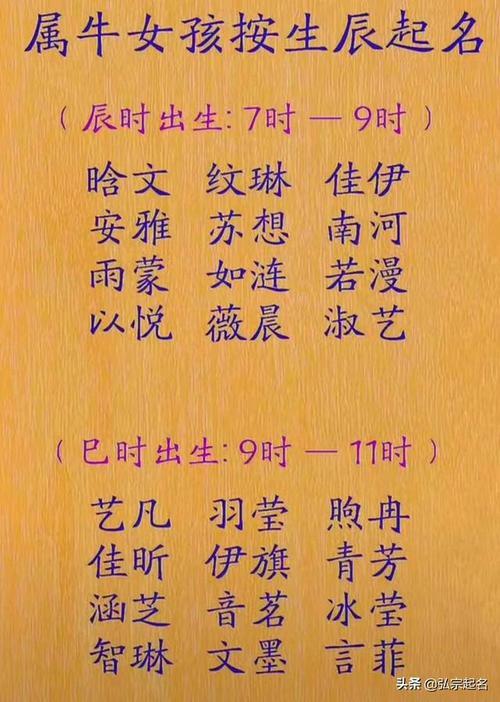 属牛女孩按生辰起名
（辰时出生：7时 — 9时）
晗文 纹琳 佳伊
安雅 苏想 南河
雨蒙 如涟 若漫
以悦 薇晨 淑艺
（巳时出生：9时 — 11时）
艺凡 羽莹 煦冉
佳昕 伊旗 青芳
涵芝 音茗 冰莹
智琳 文墨 言菲
头条 @弘宗起名